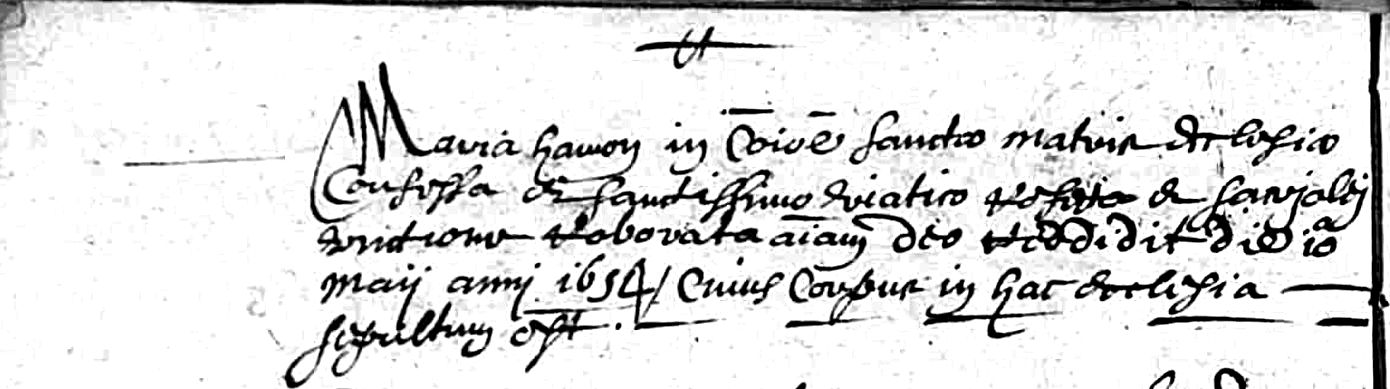 Maria hamon in Co͞io͞e sanctæ matris Ecclesiæ
Confessa & sanctissimo viatico refecta & sacrj olej
unctione roborata aīam deo reddidit die 10ª
maij annj 1654/ Cuius Corpus in hac ecclesia
sepultum est.